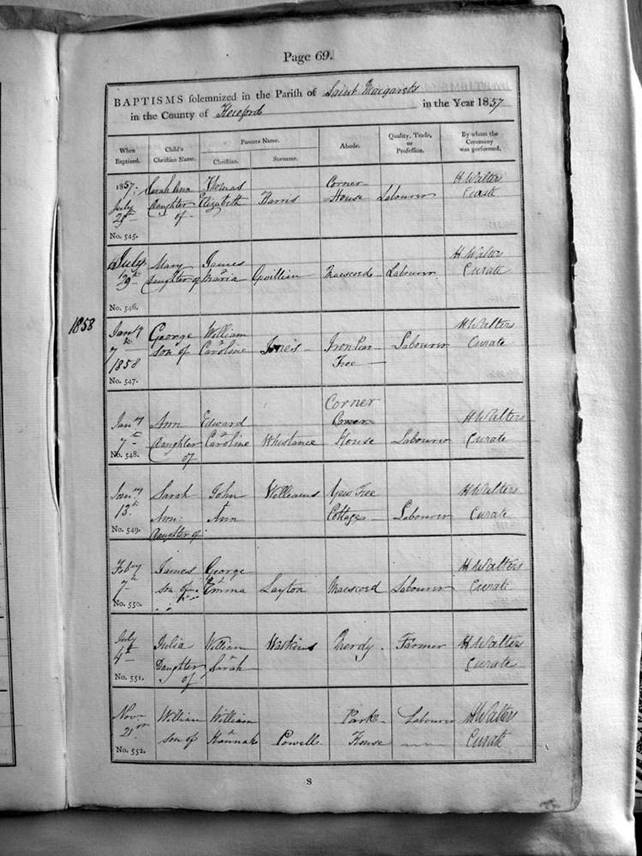 Page 69.
BAPTISMS solemnized in the Parish of Saint Margarets
in the County of Hereford in the Year 1857
When Baptized. Child's Christian Name. Parents Name. Christian. Surname. Abode. Quality, Trade, or Profession. By whom the Ceremony was performed.
1857. Sarah Ann Thomas Corner H Walter
July daughter Elizabeth Harris House Labourer Curate
29th of
No. 545.
July Mary James H Walter
29th daughter of Maria Gwillim Maescord Labourer Curate
No. 546.
1858
Jany George William Iron Pear H Walters
7th son of Caroline Jones Tree Labourer Curate
1858
No. 547.
Corner
Jany Ann Edward Corner H Walters
7th daughter Caroline Whistance House Labourer Curate
No. 548. of
Jany Sarah John Williams Yew Tree H Walters
13th Ann Ann Cottage Labourer Curate
No. 549. Daughter of
Feby James George H Walters
7th son of Emma Layton Maescord Labourer Curate
No. 550.
July Julia William Watkins Farmer H Walters
4th Daughter Sarah Curate
No. 551. of
Novr William William Park Labourer H Walters
21st son of Hannah Powell House Curate
No. 552.
S